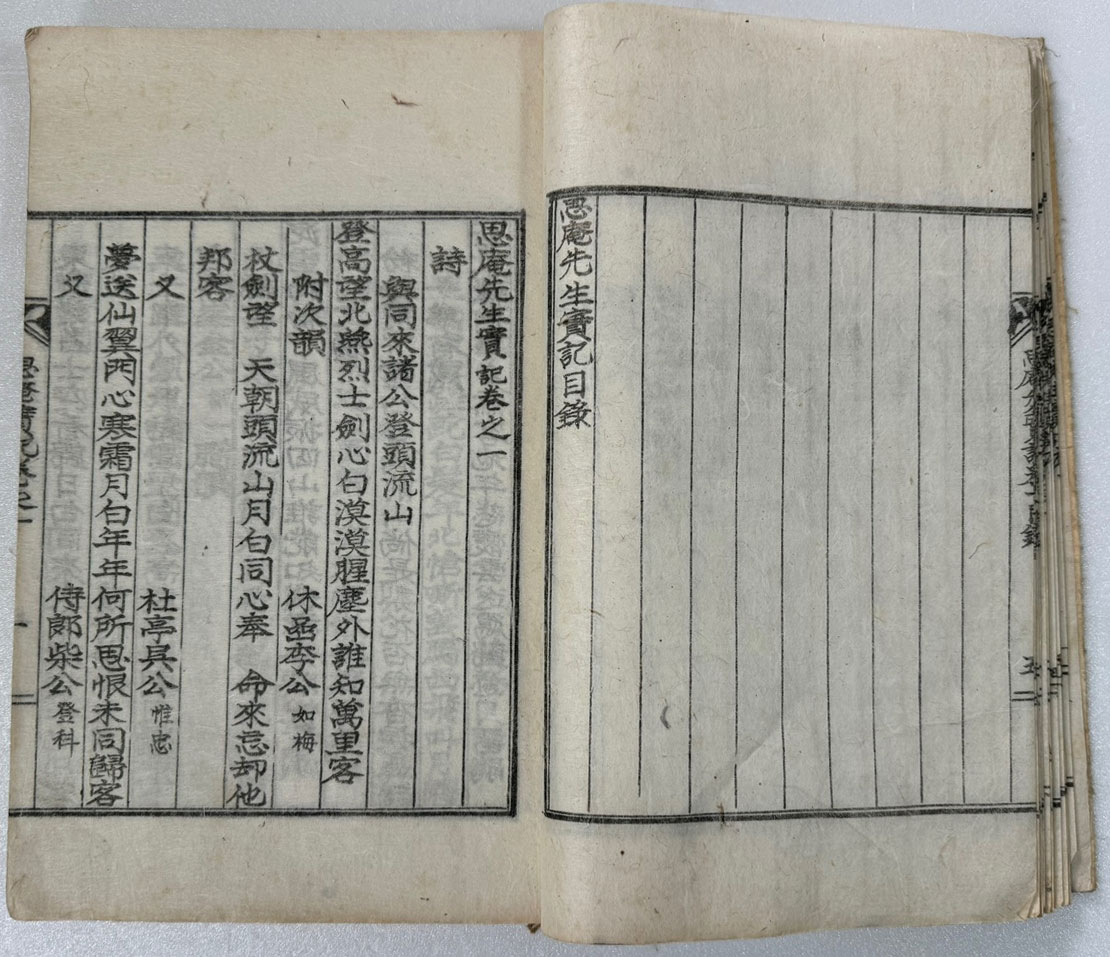 思庵先生實記目錄
思庵先生實記卷之一
詩
與同來諸公登頭流山
登高望北燕烈士劍心白漠漠腥塵外誰知萬里客
附次韻 休菴李公如梅
杖劍望 天朝頭流山月白同心奉 命來忘却他
邦客
又 杜亭吳公惟忠
夢送仙翼門心寒霜月白年年何所思恨未同歸客
又 侍郞柴公登科
思庵實記卷之一